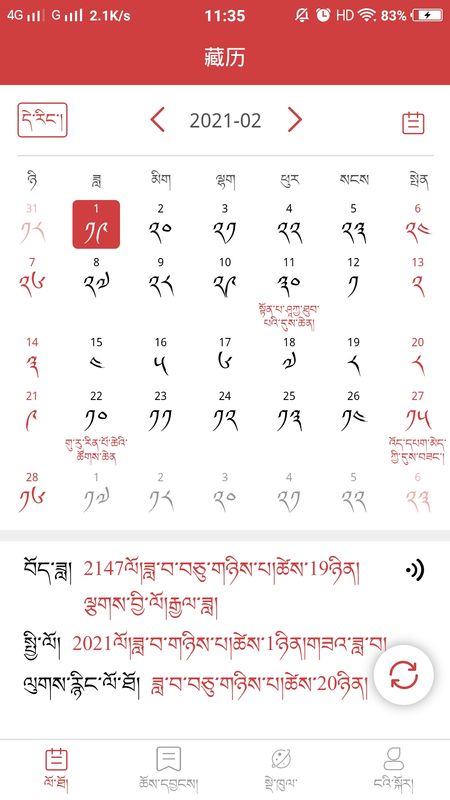 4G G 2.1K/s 11:35 HD 83%
藏历
དེ་རིང་། 2021-02
ཉི ཟླ མིག ལྷག ཕུར སངས སྤེན
31 1 2 3 4 5 6
༡༨ ༡༩ ༢༠ ༢༡ ༢༢ ༢༣ ༢༤
7 8 9 10 11 12 13
༢༦ ༢༧ ༢༨ ༢༩ ༣༠ ༡ ༢
སྟོན་པ་ཤཱཀྱ་ཐུབ་
པའི་དུས་ཆེན།
14 15 16 17 18 19 20
༣ ༤ ༥ ༦ ༧ ༨ ༨
21 22 23 24 25 26 27
༩ ༡༠ ༡༡ ༡༢ ༡༣ ༡༤ ༡༥
གུ་རུ་རིན་པོ་ཆེའི་ འོད་དཔག་མེད་
ཚོགས་ཆེན ཀྱི་དུས་བཟང་།
28 1 2 3 4 5 6
༡༦ ༡༧ ༡༨ ༢༠ ༢༡ ༢༢ ༢༣
བོད་ཟླ། 2147ལོ།ཟླ་བ་བཅུ་གཉིས་པ།ཚེས་19ཉིན།
ལྕགས་བྱི་ལོ།རྒྱལ་ཟླ།
སྤྱི་ལོ། 2021ལོ།ཟླ་བ་གཉིས་པ།ཚེས་1ཉིན།གཟའ་ཟླ་བ།
ལུགས་རྙིང་ལོ་ཐོ། ཟླ་བ་བཅུ་གཉིས་པ།ཚེས་20ཉིན།
ལོ་ཐོ། ཆོས་དབྱངས། སྡེ་ཁུལ་ ངའི་སྐོར།